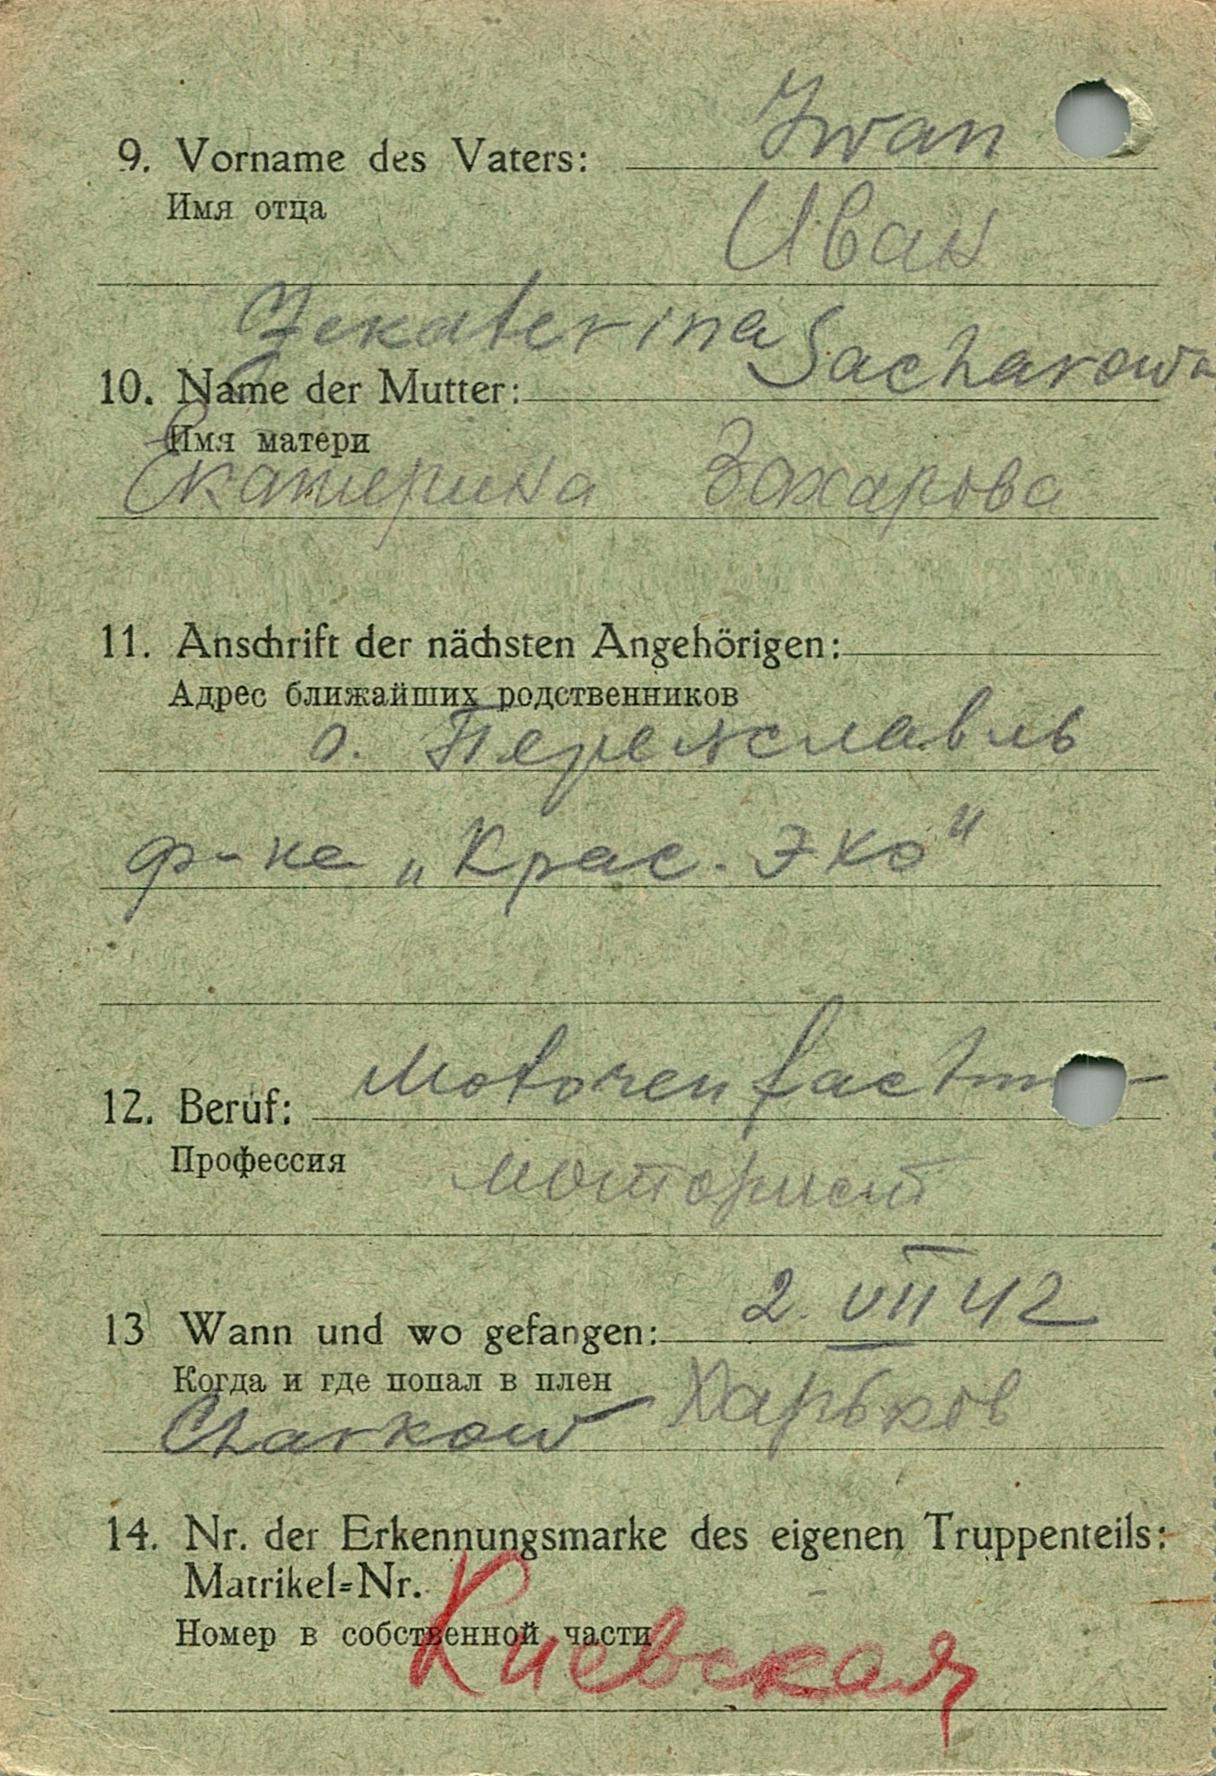 9. Vorname des Vaters: Iwan
Имя отца Иван
Jekaterina Sacharowa
10. Name der Mutter:
Имя матери
Екатерина Захарова
11. Anschrift der nächsten Angehörigen:
Адрес ближайших родственников
о. Пережславль
ф-ке „Крас. Эхо“
12. Beruf: Motoren
Профессия моторист
13 Wann und wo gefangen: 2. VII 42
Когда и где попал в плен
Charkow Харьков
14. Nr. der Erkennungsmarke des eigenen Truppenteils:
Matrikel=Nr.
Номер в собственной части
Киевская